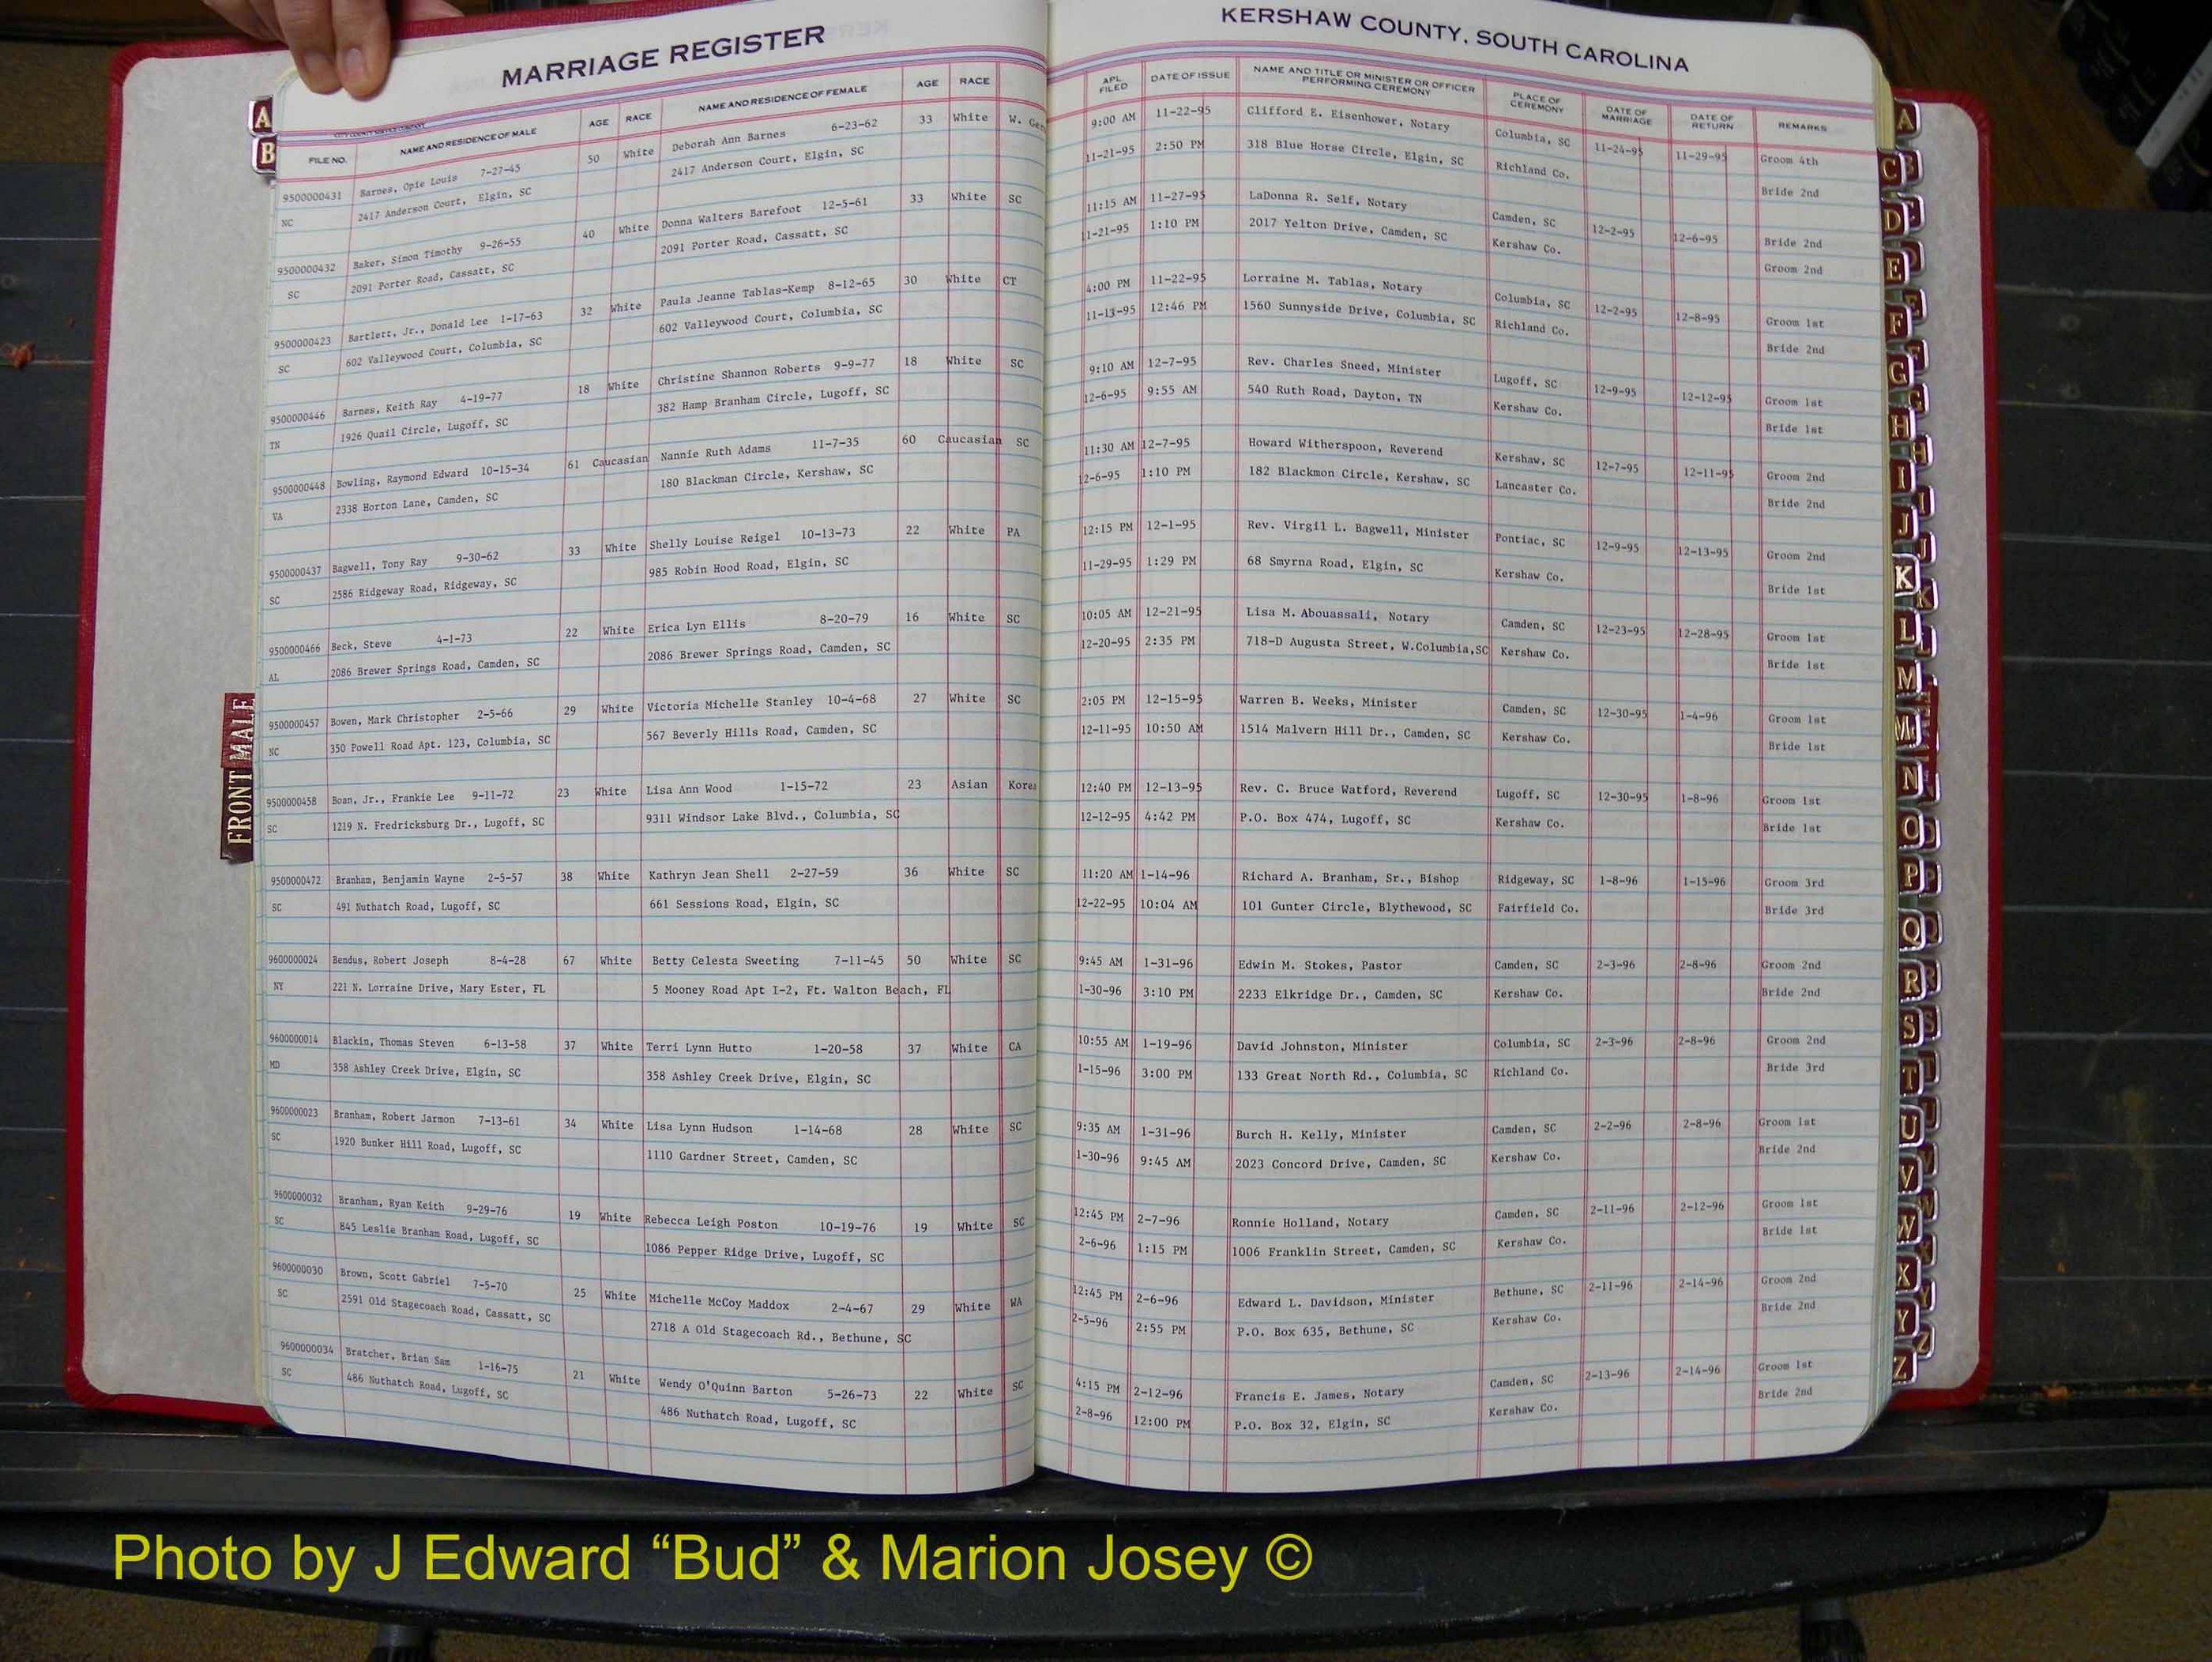 MARRIAGE REGISTER
KERSHAW COUNTY, SOUTH CAROLINA
FILE NO. NAME AND RESIDENCE OF MALE AGE RACE NAME AND RESIDENCE OF FEMALE AGE RACE APL. FILED DATE OF ISSUE NAME AND TITLE OR MINISTER OR OFFICER PERFORMING CEREMONY PLACE OF CEREMONY DATE OF MARRIAGE DATE OF RETURN REMARKS
9500000431 Barnes, Opie Louis 7-27-45 50 White Deborah Ann Barnes 6-23-62 33 White W. 9:00 AM 11-22-95 Clifford E. Eisenhower, Notary Columbia, SC 11-24-95 11-29-95 Groom 4th
NC 2417 Anderson Court, Elgin, SC 2417 Anderson Court, Elgin, SC 11-21-95 2:50 PM 318 Blue Horse Circle, Elgin, SC Richland Co. Bride 2nd
9500000432 Baker, Simon Timothy 9-26-55 40 White Donna Walters Barefoot 12-5-61 33 White SC 11:15 AM 11-27-95 LaDonna R. Self, Notary Camden, SC 12-2-95 12-6-95 Bride 2nd
SC 2091 Porter Road, Cassatt, SC 2091 Porter Road, Cassatt, SC 11-21-95 1:10 PM 2017 Yelton Drive, Camden, SC Kershaw Co. Groom 2nd
9500000423 Bartlett, Jr., Donald Lee 1-17-63 32 White Paula Jeanne Tablas-Kemp 8-12-65 30 White CT 4:00 PM 11-22-95 Lorraine M. Tablas, Notary Columbia, SC 12-2-95 12-8-95 Groom 1st
SC 602 Valleywood Court, Columbia, SC 602 Valleywood Court, Columbia, SC 11-13-95 12:46 PM 1560 Sunnyside Drive, Columbia, SC Richland Co. Bride 2nd
9500000446 Barnes, Keith Ray 4-19-77 18 White Christine Shannon Roberts 9-9-77 18 White SC 9:10 AM 12-7-95 Rev. Charles Sneed, Minister Lugoff, SC 12-9-95 12-12-95 Groom 1st
TN 1926 Quail Circle, Lugoff, SC 382 Hamp Branham Circle, Lugoff, SC 12-6-95 9:55 AM 540 Ruth Road, Dayton, TN Kershaw Co. Bride 1st
9500000448 Bowling, Raymond Edward 10-15-34 61 Caucasian Nannie Ruth Adams 11-7-35 60 Caucasian SC 11:30 AM 12-7-95 Howard Witherspoon, Reverend Kershaw, SC 12-7-95 12-11-95 Groom 2nd
VA 2338 Horton Lane, Camden, SC 180 Blackman Circle, Kershaw, SC 12-6-95 1:10 PM 182 Blackmon Circle, Kershaw, SC Lancaster Co. Bride 2nd
9500000437 Bagwell, Tony Ray 9-30-62 33 White Shelly Louise Reigel 10-13-73 22 White PA 12:15 PM 12-1-95 Rev. Virgil L. Bagwell, Minister Pontiac, SC 12-9-95 12-13-95 Groom 2nd
SC 2586 Ridgeway Road, Ridgeway, SC 985 Robin Hood Road, Elgin, SC 11-29-95 1:29 PM 68 Smyrna Road, Elgin, SC Kershaw Co. Bride 1st
9500000466 Beck, Steve 4-1-73 22 White Erica Lyn Ellis 8-20-79 16 White SC 10:05 AM 12-21-95 Lisa M. Abouassali, Notary Camden, SC 12-23-95 12-28-95 Groom 1st
AL 2086 Brewer Springs Road, Camden, SC 2086 Brewer Springs Road, Camden, SC 12-20-95 2:35 PM 718-D Augusta Street, W.Columbia,SC Kershaw Co. Bride 1st
9500000457 Bowen, Mark Christopher 2-5-66 29 White Victoria Michelle Stanley 10-4-68 27 White SC 2:05 PM 12-15-95 Warren B. Weeks, Minister Camden, SC 12-30-95 1-4-96 Groom 1st
NC 350 Powell Road Apt. 123, Columbia, SC 567 Beverly Hills Road, Camden, SC 12-11-95 10:50 AM 1514 Malvern Hill Dr., Camden, SC Kershaw Co. Bride 1st
9500000458 Boan, Jr., Frankie Lee 9-11-72 23 White Lisa Ann Wood 1-15-72 23 Asian Korea 12:40 PM 12-13-95 Rev. C. Bruce Watford, Reverend Lugoff, SC 12-30-95 1-8-96 Groom 1st
SC 1219 N. Fredricksburg Dr., Lugoff, SC 9311 Windsor Lake Blvd., Columbia, SC 12-12-95 4:42 PM P.O. Box 474, Lugoff, SC Kershaw Co. Bride 1st
9500000472 Branham, Benjamin Wayne 2-5-57 38 White Kathryn Jean Shell 2-27-59 36 White SC 11:20 AM 1-14-96 Richard A. Branham, Sr., Bishop Ridgeway, SC 1-8-96 1-15-96 Groom 3rd
SC 491 Nuthatch Road, Lugoff, SC 661 Sessions Road, Elgin, SC 12-22-95 10:04 AM 101 Gunter Circle, Blythewood, SC Fairfield Co. Bride 3rd
9600000024 Bendus, Robert Joseph 8-4-28 67 White Betty Celesta Sweeting 7-11-45 50 White SC 9:45 AM 1-31-96 Edwin M. Stokes, Pastor Camden, SC 2-3-96 2-8-96 Groom 2nd
NY 221 N. Lorraine Drive, Mary Ester, FL 5 Mooney Road Apt I-2, Ft. Walton Beach, FL 1-30-96 3:10 PM 2233 Elkridge Dr., Camden, SC Kershaw Co. Bride 2nd
9600000014 Blackin, Thomas Steven 6-13-58 37 White Terri Lynn Hutto 1-20-58 37 White CA 10:55 AM 1-19-96 David Johnston, Minister Columbia, SC 2-3-96 2-8-96 Groom 2nd
MD 358 Ashley Creek Drive, Elgin, SC 358 Ashley Creek Drive, Elgin, SC 1-15-96 3:00 PM 133 Great North Rd., Columbia, SC Richland Co. Bride 3rd
9600000023 Branham, Robert Jarmon 7-13-61 34 White Lisa Lynn Hudson 1-14-68 28 White SC 9:35 AM 1-31-96 Burch H. Kelly, Minister Camden, SC 2-2-96 2-8-96 Groom 1st
SC 1920 Bunker Hill Road, Lugoff, SC 1110 Gardner Street, Camden, SC 1-30-96 9:45 AM 2023 Concord Drive, Camden, SC Kershaw Co. Bride 2nd
9600000032 Branham, Ryan Keith 9-29-76 19 White Rebecca Leigh Poston 10-19-76 19 White SC 12:45 PM 2-7-96 Ronnie Holland, Notary Camden, SC 2-11-96 2-12-96 Groom 1st
SC 845 Leslie Branham Road, Lugoff, SC 1086 Pepper Ridge Drive, Lugoff, SC 2-6-96 1:15 PM 1006 Franklin Street, Camden, SC Kershaw Co. Bride 1st
9600000030 Brown, Scott Gabriel 7-5-70 25 White Michelle McCoy Maddox 2-4-67 29 White WA 12:45 PM 2-6-96 Edward L. Davidson, Minister Bethune, SC 2-11-96 2-14-96 Groom 2nd
SC 2591 Old Stagecoach Road, Cassatt, SC 2718 A Old Stagecoach Rd., Bethune, SC 2-5-96 2:55 PM P.O. Box 635, Bethune, SC Kershaw Co. Bride 2nd
9600000034 Bratcher, Brian Sam 1-16-75 21 White Wendy O'Quinn Barton 5-26-73 22 White SC 4:15 PM 2-12-96 Francis E. James, Notary Camden, SC 2-13-96 2-14-96 Groom 1st
SC 486 Nuthatch Road, Lugoff, SC 486 Nuthatch Road, Lugoff, SC 2-8-96 12:00 PM P.O. Box 32, Elgin, SC Kershaw Co. Bride 2nd
A
B
FRONT MALE
A
C
D
E
F
G
H
I
J
K
L
M
Mc
N
O
P
Q
R
S
T
U
V
W
X
Y
Z
Photo by J Edward “Bud” & Marion Josey ©